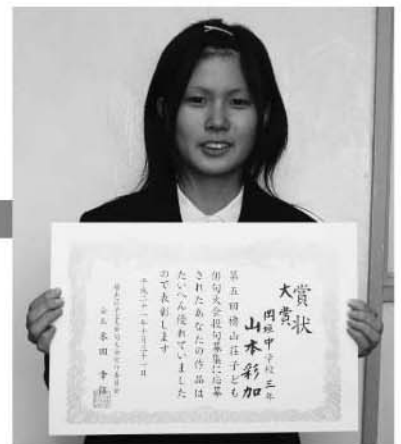 賞状
大賞
岡垣中学校三年
山本彩加
第五回檜山荘子ども
俳句大会投句募集に応募
されたあなたの作品は
たいへん優れていました
ので表彰します
平成二十一年十月三十一日
会長 本田幸信